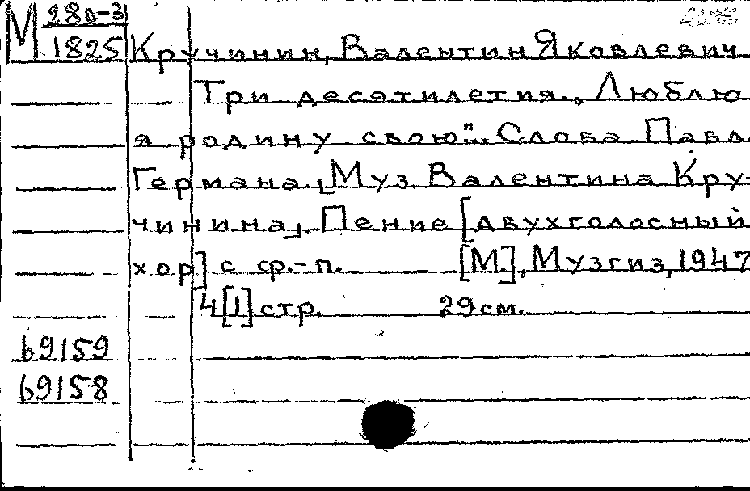 М 280-3
1825
Кручинин, Валентин Яковлевич
Три десятилетия. „Люблю
я родину свою". Слова Павл.
Германа. [Муз. Валентина Кру-
чинина]. Пение [двухголосный
хор] с ф.-п. [М.], Музгиз, 1947
4[1] стр. 29 см.
69159
69158